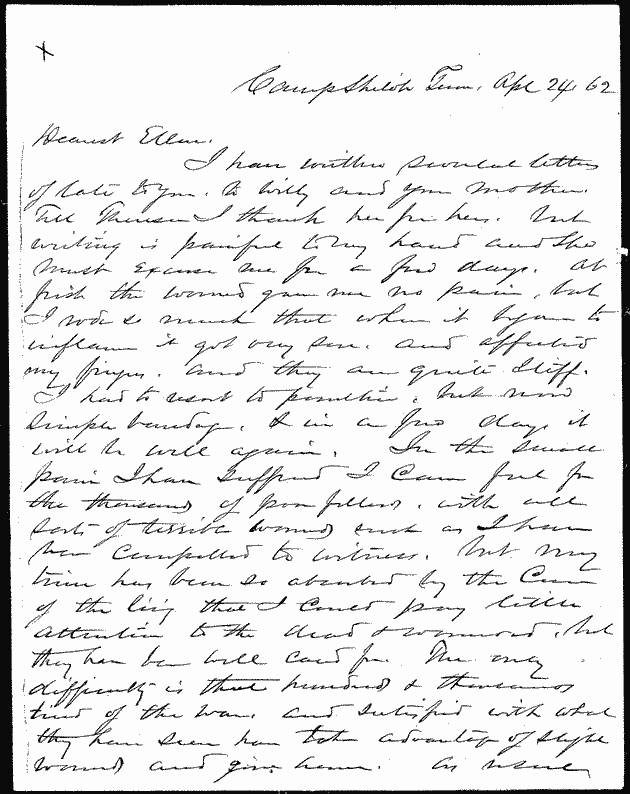 x
Camp Shiloh Tenn. Apl 24, 62
Dearest Ellen.
I have written several letters
of late to you. to Willy and your mother.
Tell Theresa I thank her for hers. but
writing is painful to my hand and she
must excuse me for a few days. At
first the wound gave me no pain, but
I rode so much that when it began to
inflame it got very sore. and affected
my fingers. and they are quite stiff.
I had to resort to poultice, but now
simple bandage, & in a few days it
will be well again. In the small
pain I have suffered I can feel for
the thousands of poor fellows, with all
sorts of terrible wounds such as I have
been compelled to witness. but my
time has been so absorbed by the Care
of the living that I could pay little
attention to the dead & wounded, but
they have been well cared for. The only
difficulty is that hundreds & thousands
tired of the war, and satisfied with what
they have seen have taken advantage of slight
wounds and gone home. As usual